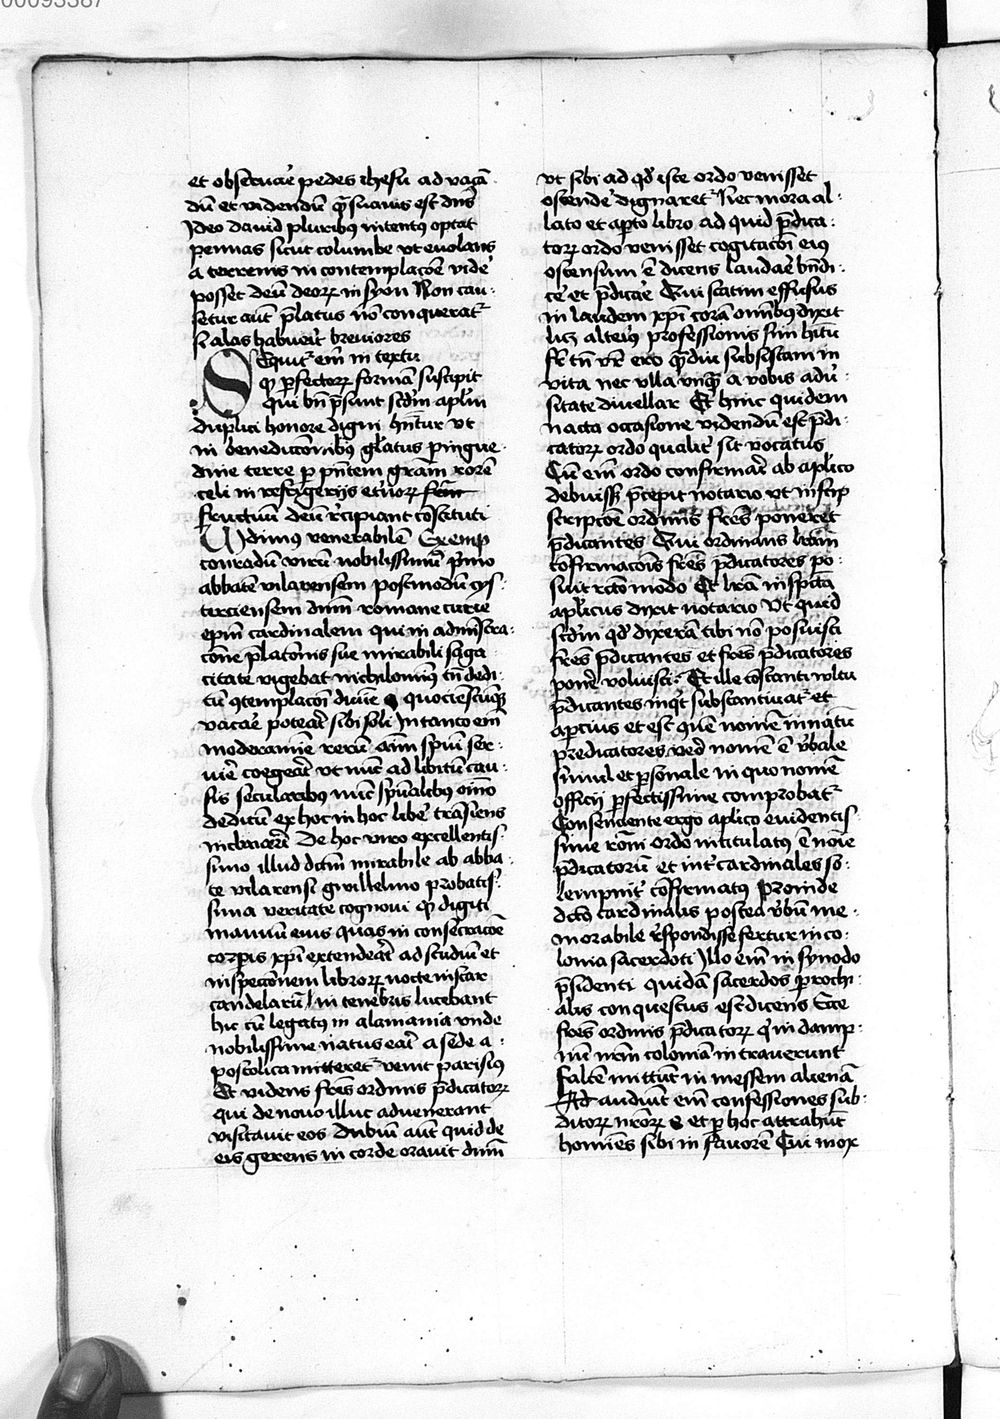 00093387
et obseruare pedes ihesu ad vacā
dū et videndū q̄ suauis est dn̄s
Ideo dauid pluribꝰ intentꝰ optat
pennas sicut columbe vt euolans
a terrenis in contemplacōe vide͛
posset deū deoꝝ in syon Non cau-
setur aūt p̄latus nō conquerat᷑
si alas habuerit breuiores
Sequit᷑ em̄ in textu
ꝙ ꝑfectoꝝ formā suscipit
Qui bn̄ p̄sunt scd̄m apl̄m
duplici honore digni hn̄tur vt
in benedictōnibꝰ gl̄atus pingue-
dine terre ꝑ pn̄tem grām̄ rorē
celi in refrigerijs
fructuū deū r̄cipiant cōstituti
Vidimus venerabilē Exemp
conradū virū nobilissimū p̄mo
abbatē vilarensem postmodū cys-
terciensem dn̄m romane curie
ep̄m cardinalem qui in admīstra-
tōne p̄latōnis sue mirabili saga-
citate vigebat nichilominꝰ tn̄ dedi-
tꝰ ꝯtemplacōi diuīe quociēscūqꝫ
vacare poterat sibi soli In tanto em̄
moderamine rerū aīm spūi ser-
uire coegerat vt nūc ad libitū cau-
sis secularibꝰ nūc spūalibꝰ om̄īo
deditū ex hoc in hoc libe͛ trāsiens
De hoc viro excellentis-
simo illud dictū mirabile ab abba-
te vilarensi gwillelmo probatis-
sima veritate cognoui ꝙ digiti
manuū eius quas in consecracōe
corꝑis xp̄i extenderat ad studiū et
inspectionem libroꝝ nocte instar
candelarū in tenebris lucebant
hic cū legatꝰ in alamania vnde
nobilissime natus erat a sede a-
postolica mitteret᷑ venit parisiꝰ
Et videns fr̄es ordinis p̄dicatoꝝ
qui de nouo illuc aduenerant
visitauit eos dubiū aūt quid de
eis gerens in corde orauit dn̄m
vt sibi ad qd̄ iste ordo venisset
ostende͛ dignaret᷑ Nec mora al-
lato et aꝑto libro ad quid p̄dica-
toꝝ ordo venisset cogitacōi eiꝰ
ostensum ē dicens laudare bn̄di-
ce͛ et p̄dicare Qui statim effusus
in laudem xp̄i corā om̄ibꝰ dixit
licꝫ alteriꝰ professionis sim hītū
fr̄ tn̄ vr̄ ero q̄diu subsistam in
vita nec vlla vnq̄ a vobis adu͛-
sitate diuellar Et hinc quidem
nacta occasione videndū est p̄di-
catoꝝ ordo qualit᷑ sit vocatus
Cū em̄ ordo confirmari ab aplico
debuissꝫ p̄cepit notario vt in scp̄
scripcōe ordinis fr̄es poneret
p̄dicantes Qui ordinans lrām
cōfirmacōis fr̄es p̄dicatores po-
suit rc̄to modo Et lrā inspcā
aplicus dixit notario Vt quid
scd̄m qd̄ dixerā tibi nō posuisti
fr̄es p̄dicantes et fr̄es p̄dicatores
pone͛ voluisti Et ille cōstanti vltu
p̄dicantes inqͥt substantiuat᷑ et
aꝑcius et est
predicatores ꝟo nomē ē ꝟbale
simul et ꝑsonale in quo nomē
officij ꝑfectissime comprobat᷑
Consenciente ergo aplico euidentis-
sime rōni ordo intitulatꝰ ē noīe
p̄dicatorū et int᷑ cardinales so-
lempnit᷑ cōfirmatꝰ Proinde
dcūs cardinalis postea ꝟbū me-
morabile r̄spondisse fertur in co-
lonia sacerdoti Illo em̄ in synodo
p̄sidenti quidā sacerdos ꝑrochi-
alis conquestus est dicens Ecce
fr̄es ordinis p̄dicatoꝝ qͥ in damp-
nū nr̄m coloniā intrauerunt
falcē mittūt in messem alienā
Audiūt em̄ confessiones sub-
ditoꝝ nr̄oꝝ et ꝑ hoc attrahūt
homīes sibi in fauorē Cui mox